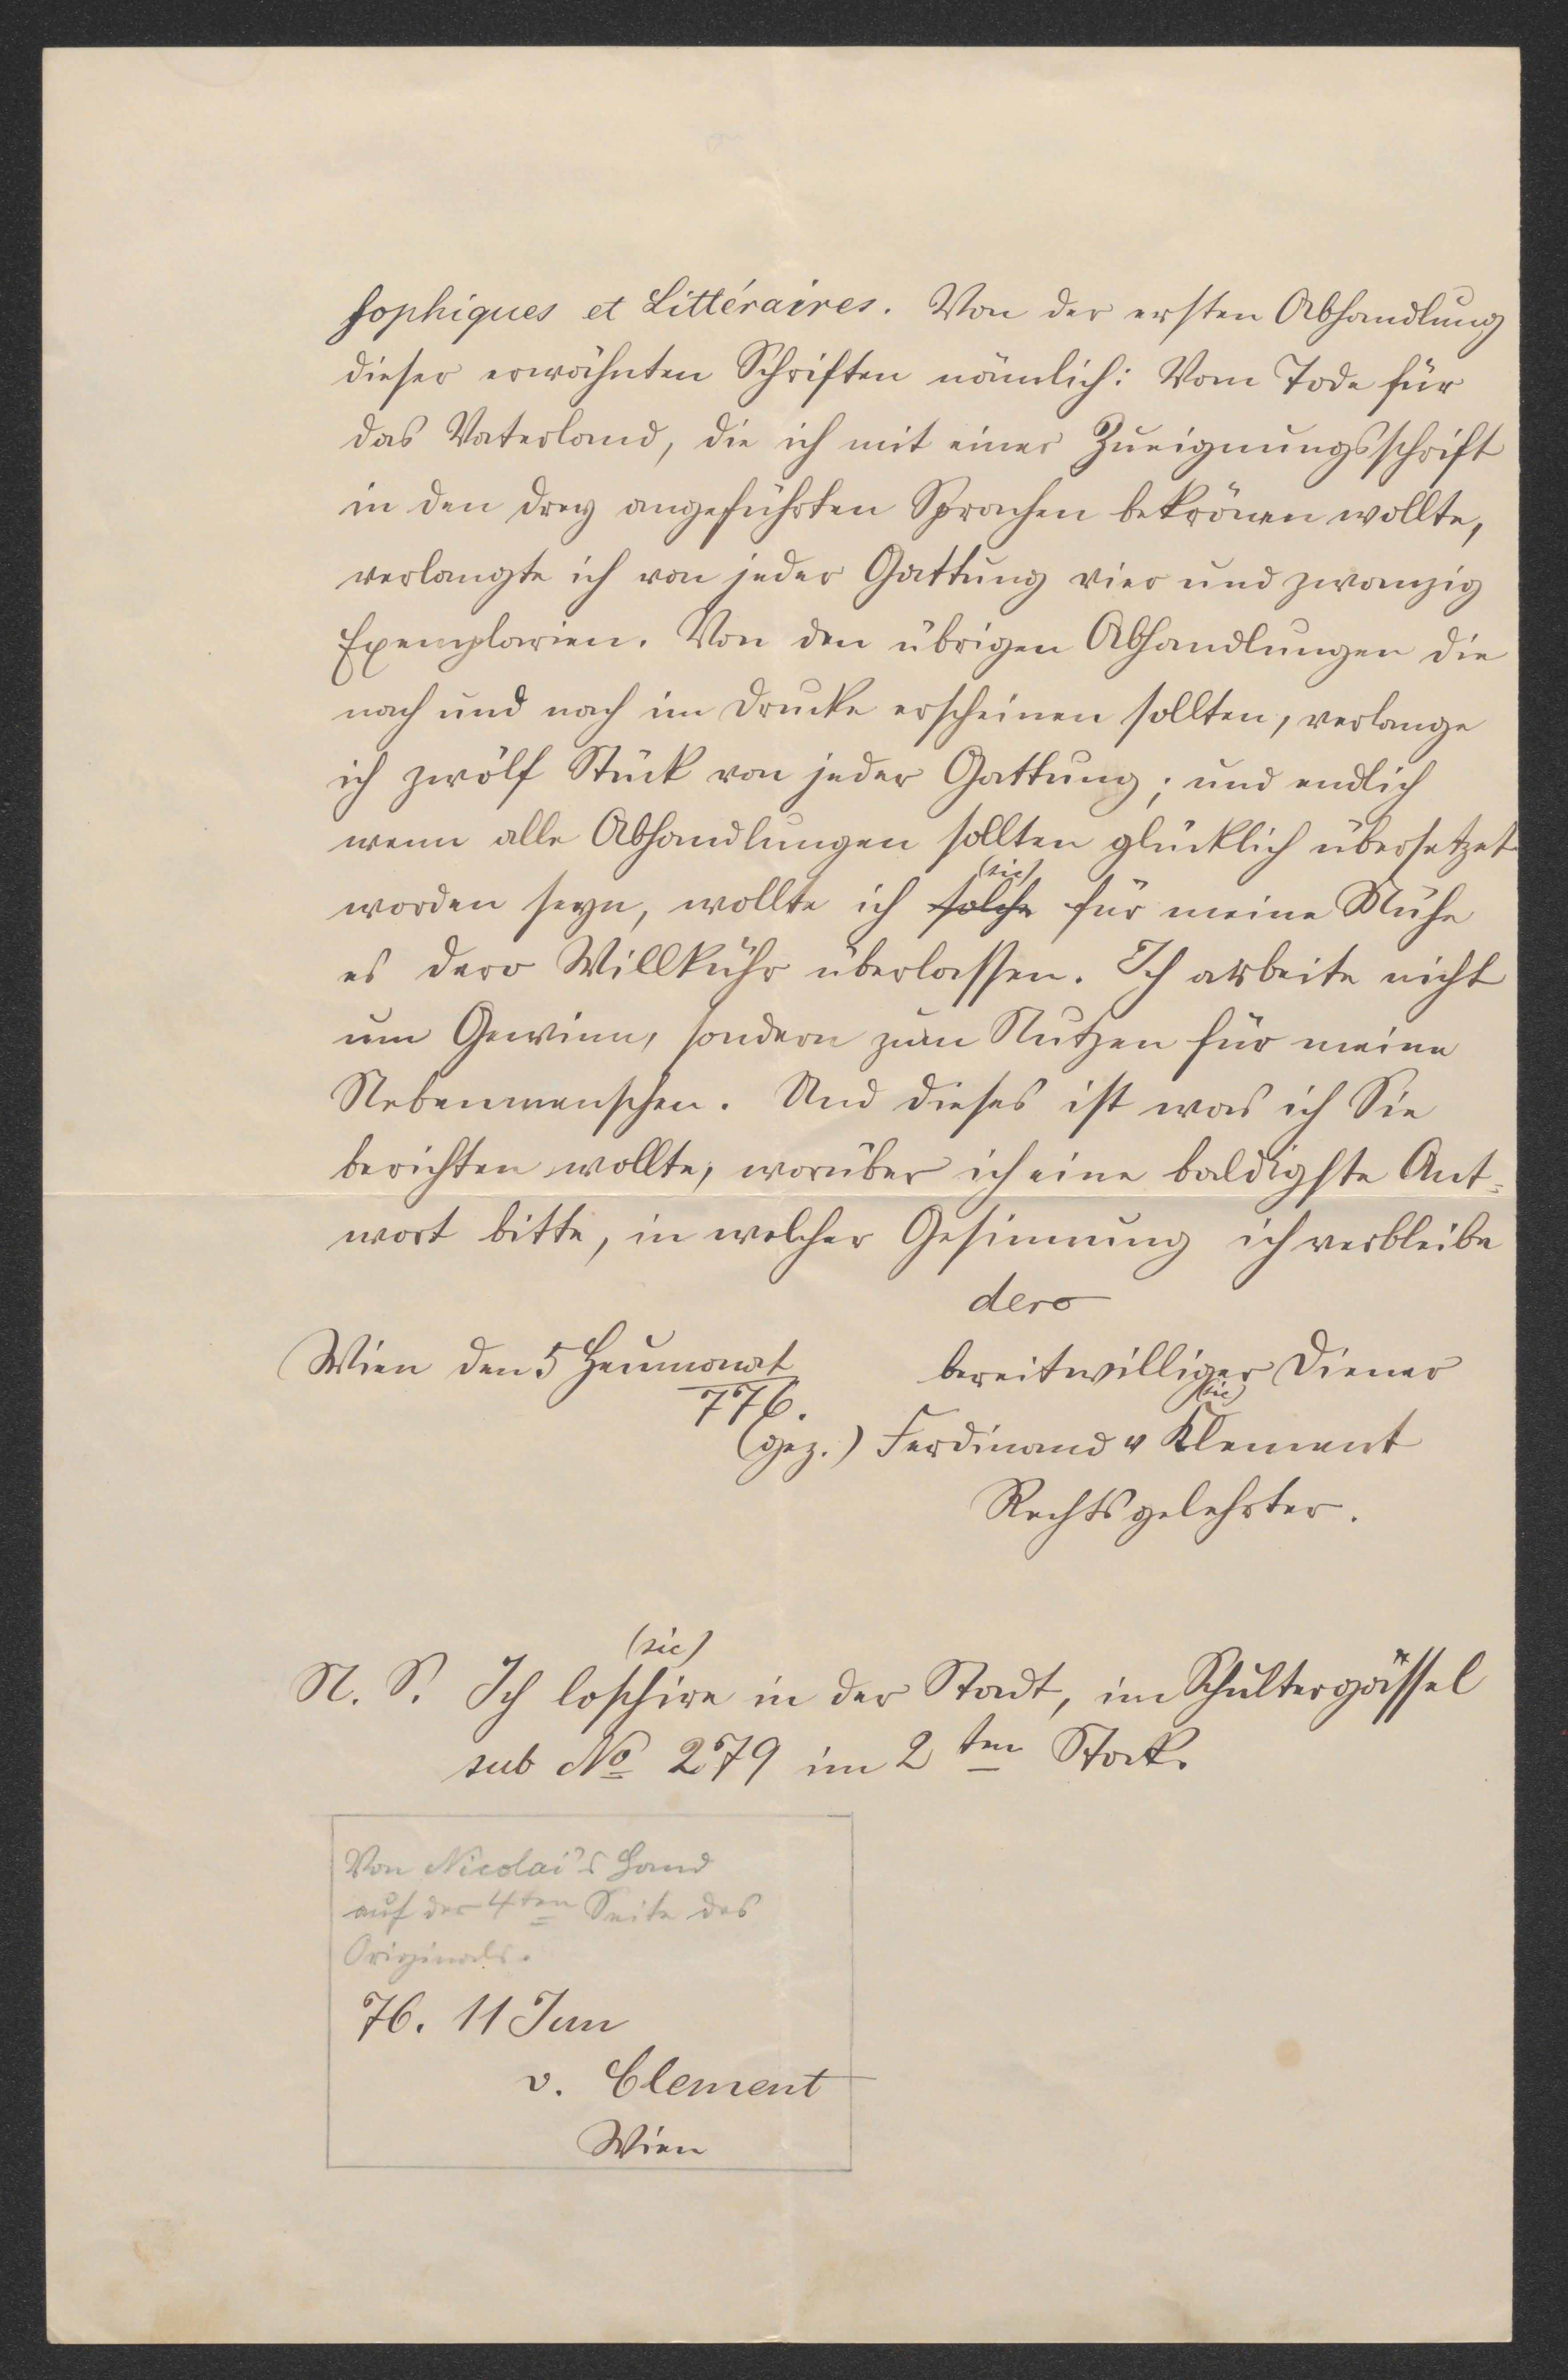 sophiques et Littéraires. Von der ersten Abhandlung
dieser erwähnten Schriften nämlich: Vom Tode für
das Vaterland, die ich mit einer Zueignungsschrift
in den drey angeführten Sprachen bekrönen wollte,
verlangte ich von jeder Gattung vier und zwanzig
Exemplarien. Von den übrigen Abhandlungen die
nach und nach im Drucke erscheinen sollten, verlange
ich zwölf Stück von jeder Gattung; und endlich
wenn alle Abhandlungen sollten glücklich übersetzet
(sic)
worden seyn, wollte ich solche für meine Mühe
es dero Willkühr überlassen. Ich arbeite nicht
um Gewinn, sondern zum Nutzen für meine
Nebenmenschen. Und dieses ist was ich Sie
berichten wollte, worüber ich eine baldigste Ant=
wort bitte, in welcher Gesinnung ich verbleibe
dero
Wien den 5 Heumonat bereitwilliger Diener
776.
(sic)
(gez.) Ferdinand v Klement
Rechtsgelehrter.
(sic)
N. S. Ich loschire in der Stadt, im Schultergässel
sub No 279 im 2ten Stock.
Von Nicolai's Hand
auf der 4ten Seite des
Originals.
76. 11 Jun
v. Clement
Wien